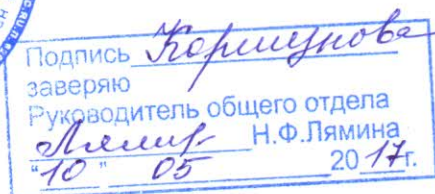 Подпись Коршунова
заверяю
Руководитель общего отдела
Н.Ф.Лямина
"10" 05 2017г.